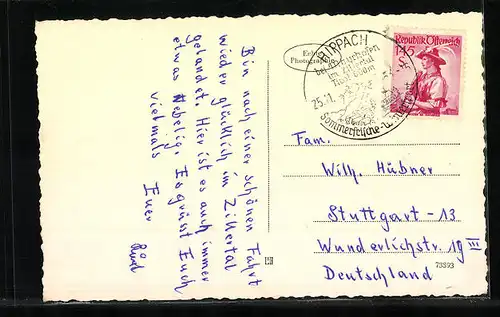 Bin nach einer schönen Fahrt
wieder glücklich im Zillertal
gelandet. Hier ist es auch immer
etwas Nebelig. Es grüsst Euch
vielmals Euer
Echte
HIPPACH
bei Mayrhofen
im Zillertal
25.
Sommerfrische - u.
Republik Österreich
1.45
S
Fam.
Wilh. Hübner
Stuttgart-13
Wunderlichstr. 19 III
Deutschland
73393